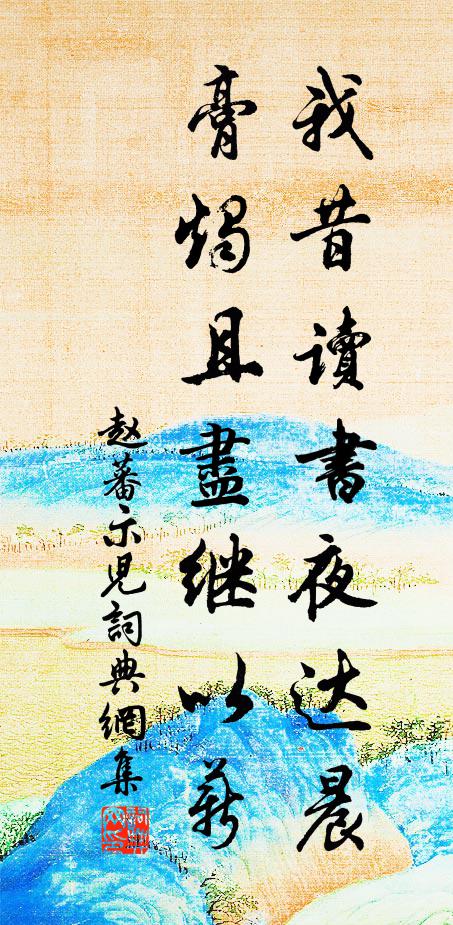 我昔讀書夜达晨
膏燭且盡继以薪
赵蕃示児詞典網集